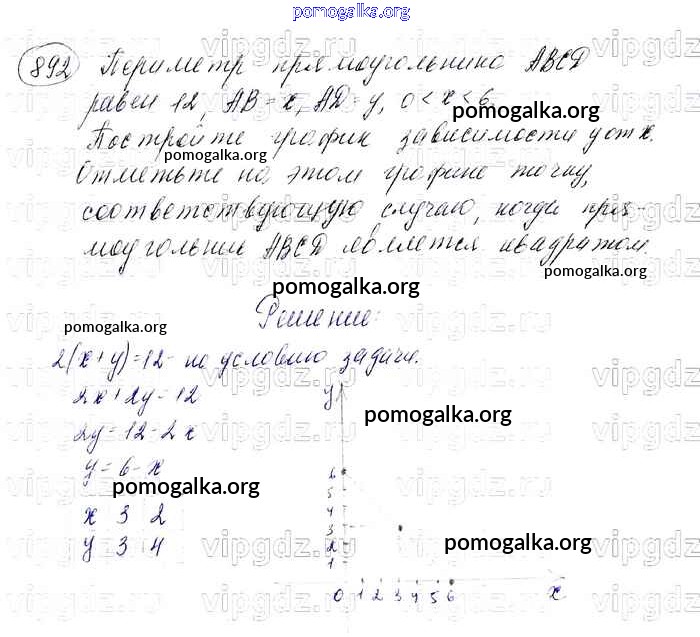 pomogalka.org
892 Периметр прямоугольника ABCD
равен 12, AB = x, AD = y, 0 < x < 6.
pomogalka.org
Постройте график зависимости y от x.
pomogalka.org
Отметьте на этом графике точку,
соответствующую случаю, когда пря-
моугольник ABCD является квадратом.
pomogalka.org
pomogalka.org
Решение:
pomogalka.org
2(x+y)=12 - по условию задачи.
2x+2y=12
pomogalka.org
2y=12-2x
y=6-x
pomogalka.org
x 3 2
y 3 4
pomogalka.org
y
6
5
4
3
2
1
0 1 2 3 4 5 6 x
vipgdz.ru